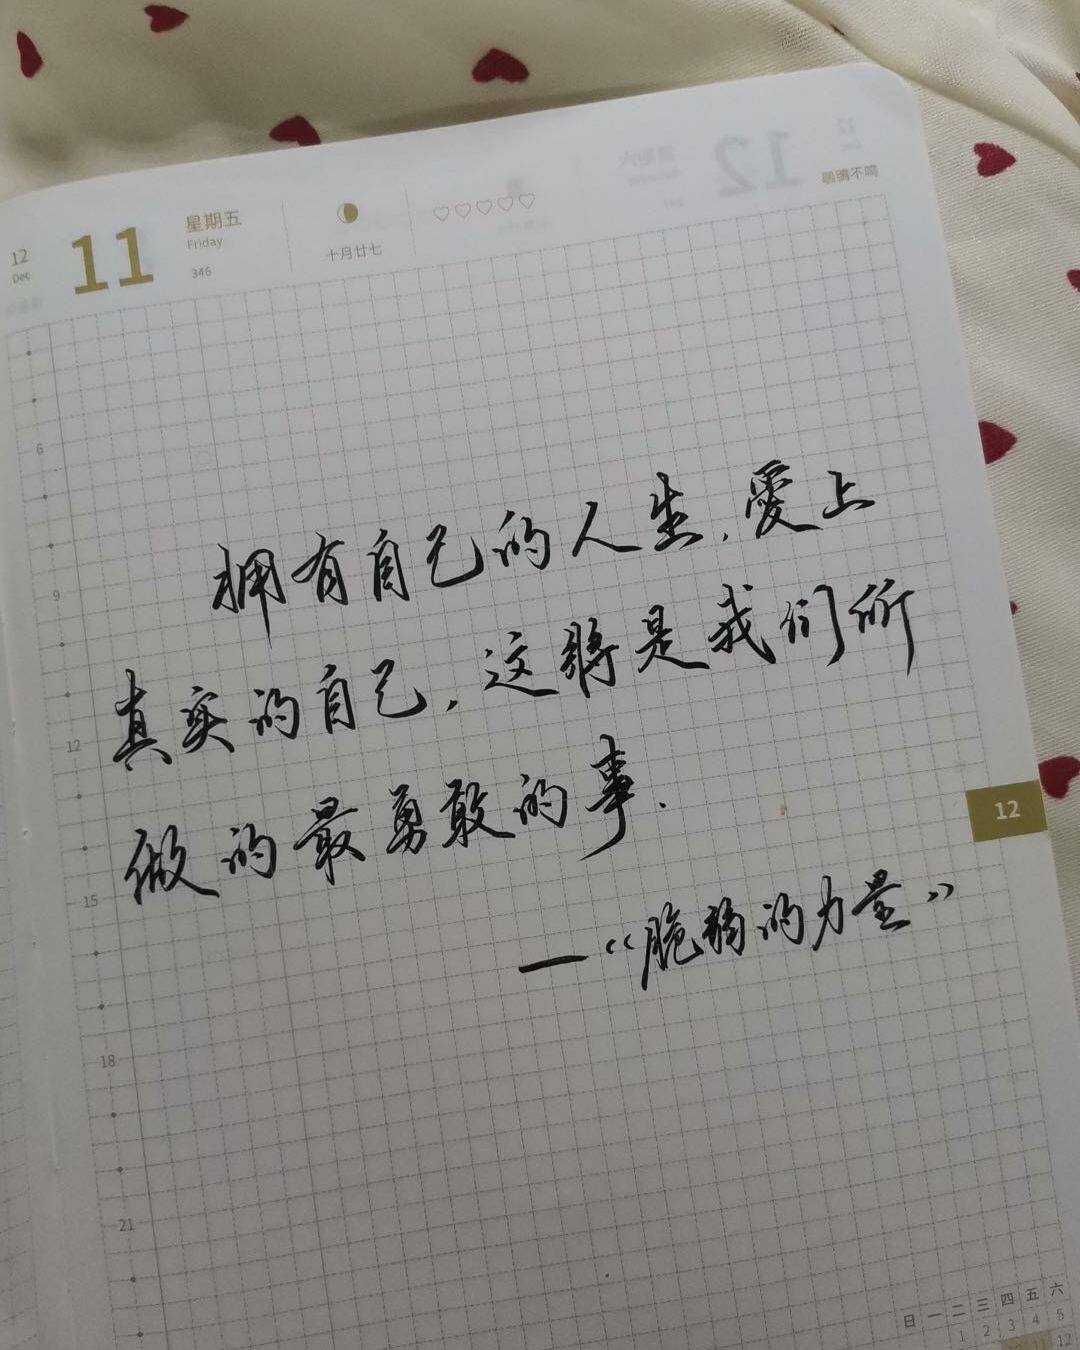 12
Dec
11
星期五
Friday
346
十月廿七
鹖鴠不鸣
6
9
12
15
18
21
拥有自己的人生,爱上
真实的自己,这将是我们所
做的最勇敢的事.
—“脆弱的力量”
12
日 一 二 三 四 五 六
1 2 3 4 5
10 11 12